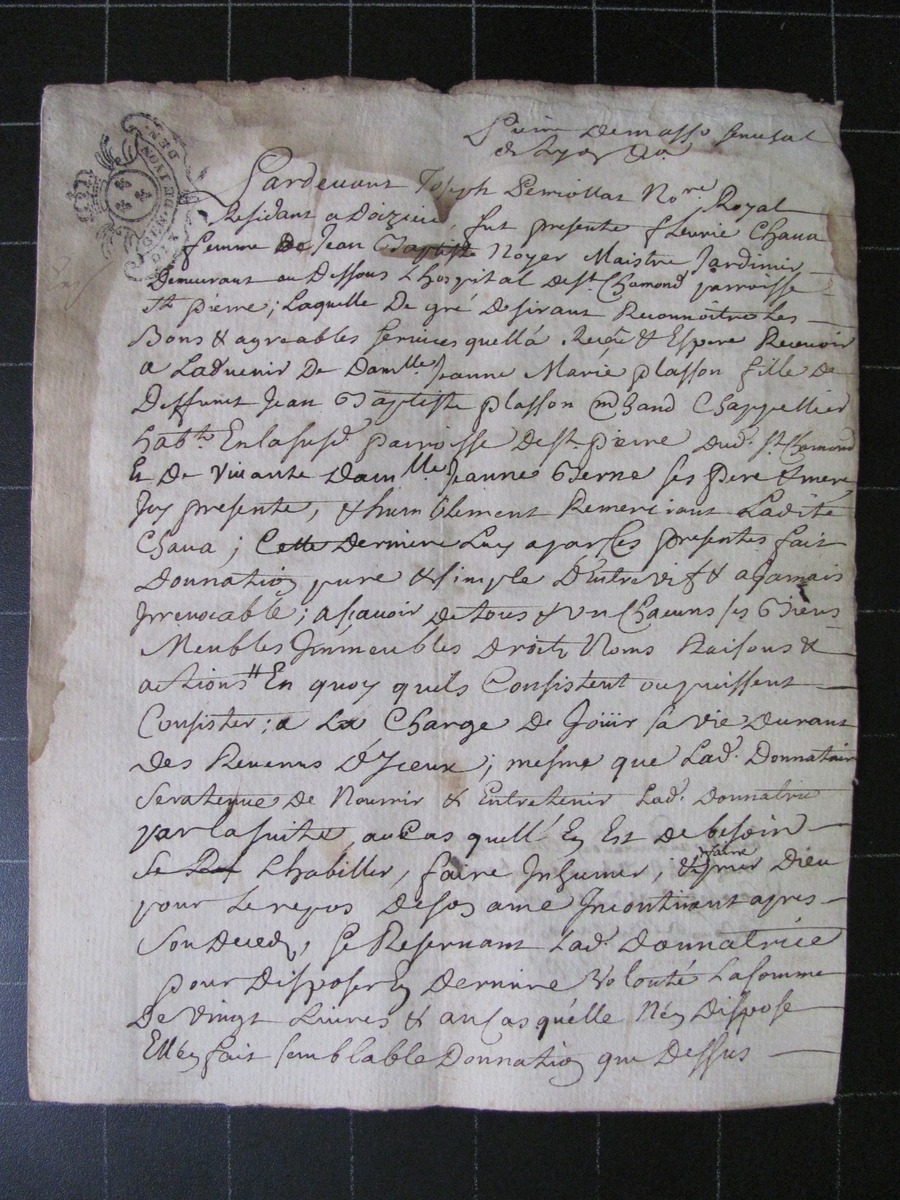 GNRALITE DE LYON
de Lyon
Pardevant Joseph Perriollat No.re Royal
Residant a Doizieu, fut presente fleurie Chava
femme De Jean Baptiste Noyer Maistre Jardinier
Demeurant au Dessous L'hospital de st. Chamond parroisse
st. pierre; Laquelle De gré Desirant Reconnoitre Les
Bons & agreables Services quell'a Reçeu & Espere Recevoir
a Ladvenir De Dam.lle Jeanne Marie plasson fille De
Deffunct Jean Baptiste plasson M.chand Chappellier
hab.t En la susd. parroisse De st. pierre dud. st. Chamond
Et De vivante Dam.lle Jeanne Berne ses pere & mere
Icy presente, & humblement Remerciant Ladite
Chava; Cette Derniere Luy a par Ces presentes fait
Donnation pure & simple D'Entrevifs & a Jamais
Irrevocable; a scavoir de tous & un Chacuns ses Biens
Meubles Immeubles Droits Noms Raisons &
actions En quoy quils Consistent ou puissent
Consister; a La Charge De Joüir sa vie durant
Des Revenus D'Iceux; mesme que Lad. Donnataire
Sera tenue De Nourrir & Entretenir Lad. Donnatrice
par la suite, au Cas quell'En Est De besoin
Se L'habiller, faire Inhumer, & faire prier Dieu
pour Le repos De son ame Incontinent apres
Son Deced, se Reservant Lad. Donnatrice
pour Disposer En Derniere Volonté La somme
De Vingt Livres & au Cas qu'elle N'en Dispose
Ell'en fait semblable Donnation que Dessus